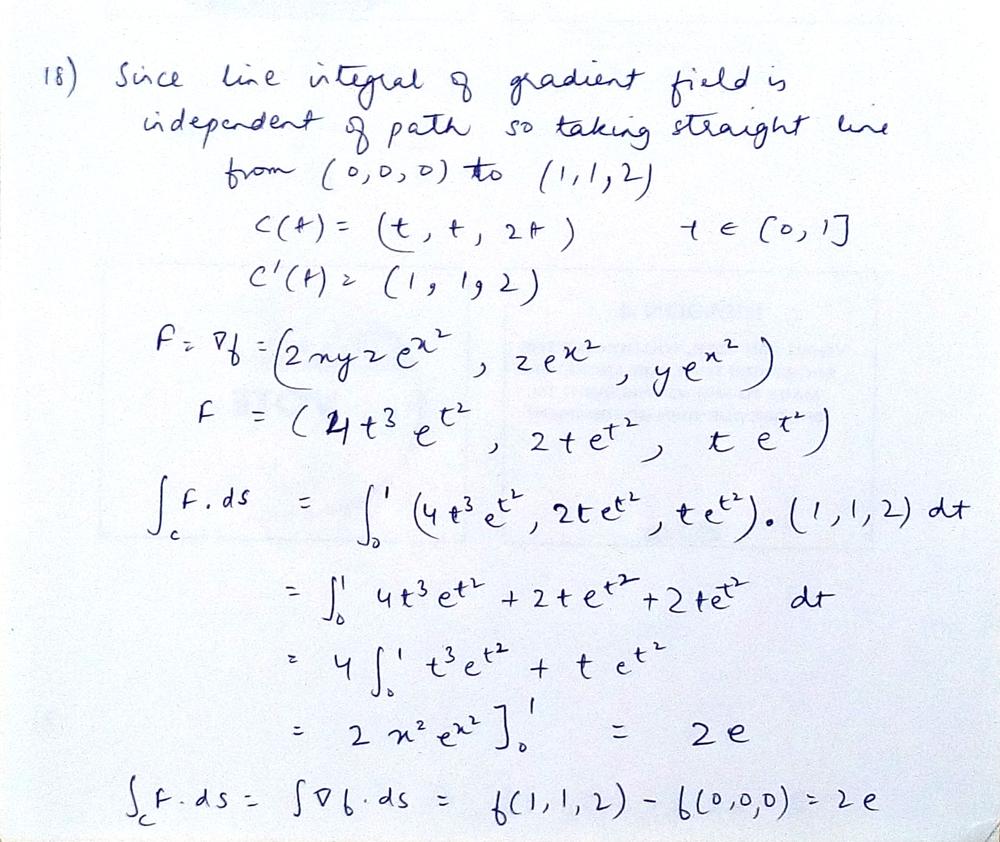 18) Since line integral of gradient field is
independent of path so taking straight line
from (0,0,0) to (1,1,2)
c(t) = (t, t, 2t) t ∈ [0,1]
c'(t) = (1, 1, 2)
F = ∇f = (2xyz e^x², z e^x², y e^x²)
F = (4t³ e^t², 2t e^t², t e^t²)
∫_c F. ds = ∫₀¹ (4t³ e^t², 2t e^t², t e^t²). (1,1,2) dt
= ∫₀¹ 4t³ e^t² + 2t e^t² + 2t e^t² dt
= 4 ∫₀¹ t³ e^t² + t e^t²
= 2 x² e^x² ]₀¹ = 2e
∫_c F. ds = ∫ ∇f. ds = f(1,1,2) - f(0,0,0) = 2e